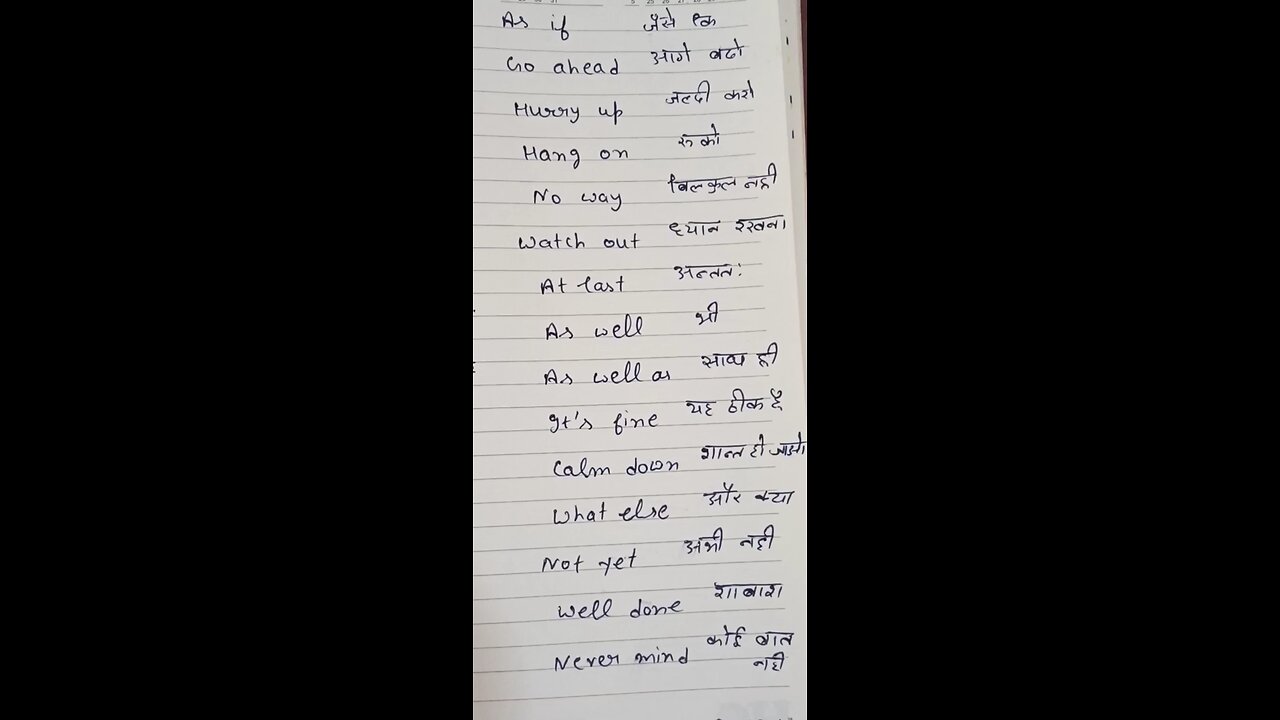 As if जैसे कि
Go ahead आगे बढो
Hurry up जल्दी करो
Hang on रुको
No way बिलकुल नही
Watch out ध्यान रखना
At last अन्ततः
As well भी
As well as साथ ही
It's fine यह ठीक है
Calm down शान्त हो जाओ
What else और क्या
Not yet अभी नही
Well done शाबाश
Never mind कोई बात
नही